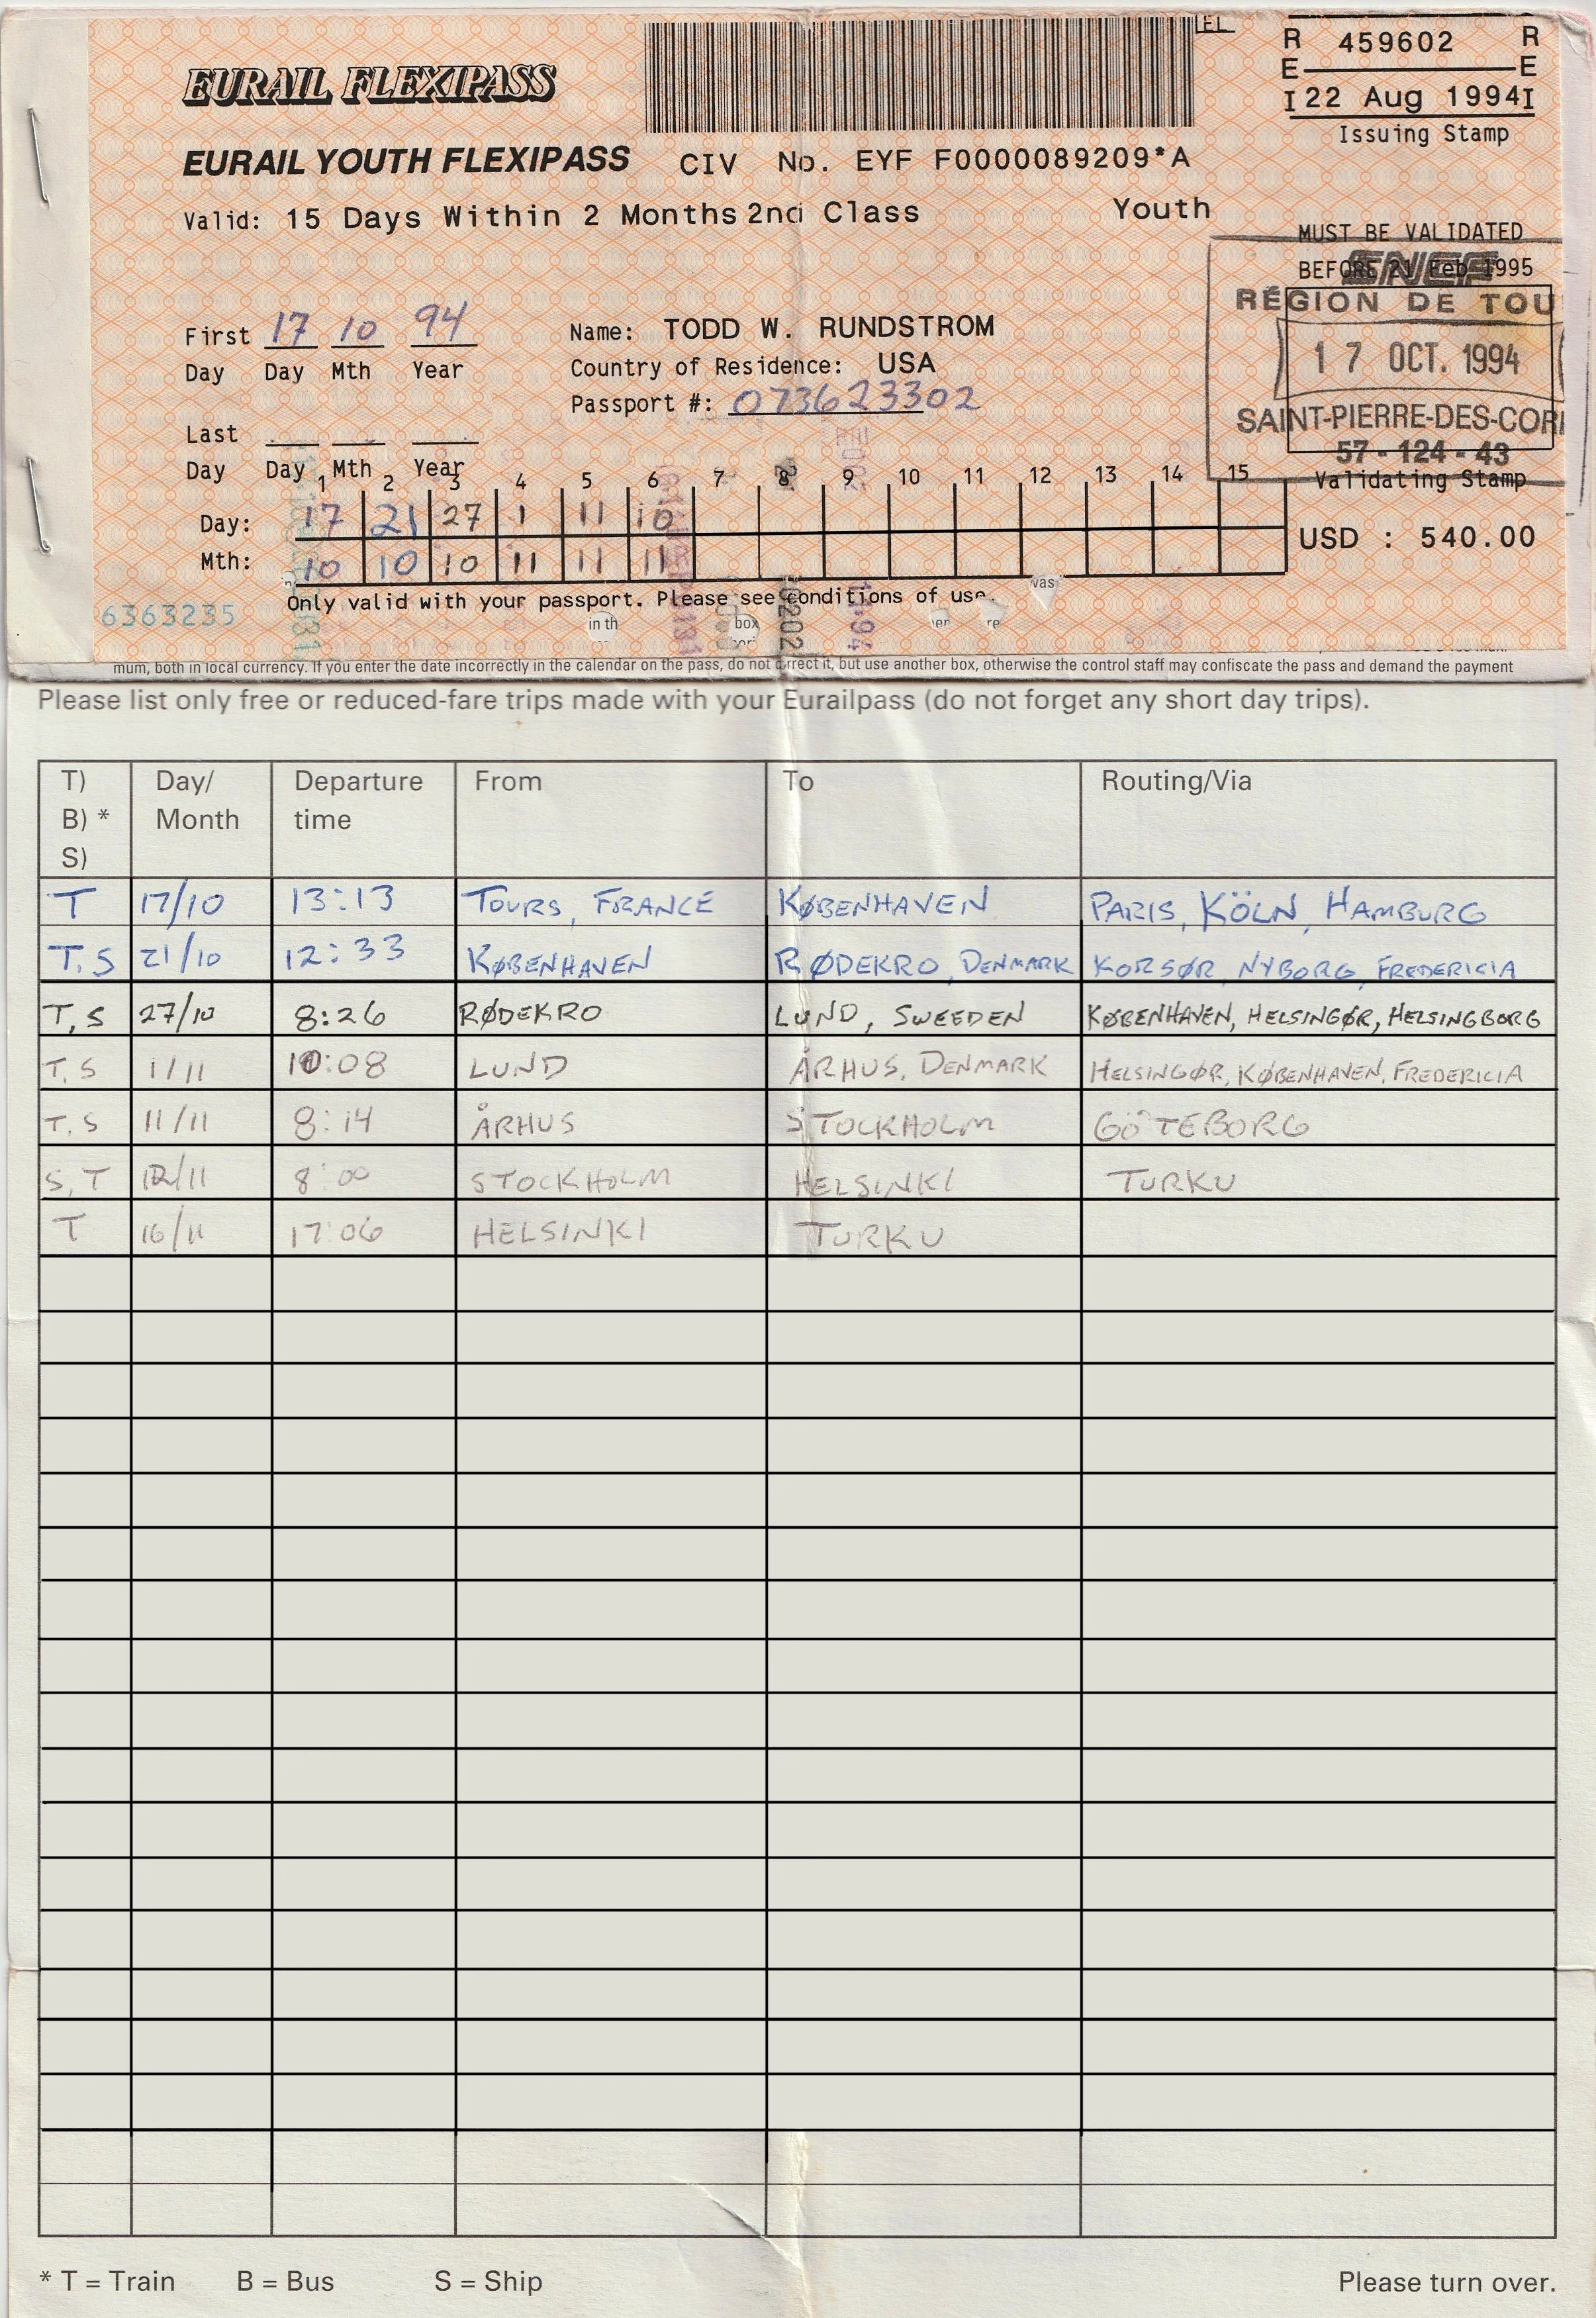 EURAIL FLEXIPASS
EL
R 459602 R
E E
I 22 Aug 1994 I
Issuing Stamp
EURAIL YOUTH FLEXIPASS CIV No. EYF F0000089209*A
Valid: 15 Days Within 2 Months 2nd Class Youth
MUST BE VALIDATED
BEFORE 21 Feb 1995
SNCF
RÉGION DE TOU
17 OCT. 1994
SAINT-PIERRE-DES-COR
57 - 124 - 43
Validating Stamp
First 17 10 94
Day Day Mth Year
Name: TODD W. RUNDSTROM
Country of Residence: USA
Passport #: 073623302
Last
Day Day Mth Year
1 2 3 4 5 6 7 8 9 10 11 12 13 14 15
Day: 17 21 27 1 11
Mth: 10 10 10 11 11 11
USD : 540.00
Only valid with your passport. Please see conditions of use.
6363235
in th box
vas
mum, both in local currency. If you enter the date incorrectly in the calendar on the pass, do not correct it, but use another box, otherwise the control staff may confiscate the pass and demand the payment
Please list only free or reduced-fare trips made with your Eurailpass (do not forget any short day trips).
T) Day/ Departure From To Routing/Via
B) * Month time
S)
T 17/10 13:13 TOURS, FRANCE KØBENHAVEN PARIS, KÖLN, HAMBURG
T, S 21/10 12:33 KØBENHAVEN RØDEKRO, DENMARK KORSØR, NYBORG, FREDERICIA
T, S 27/10 8:26 RØDEKRO LUND, SWEEDEN KØBENHAVEN, HELSINGØR, HELSINGBORG
T, S 1/11 10:08 LUND ÅRHUS, DENMARK HELSINGØR, KØBENHAVEN, FREDERICIA
T, S 11/11 8:14 ÅRHUS STOCKHOLM GÖTEBORG
S, T 12/11 8:00 STOCKHOLM HELSINKI TURKU
T 16/11 17:06 HELSINKI TURKU
* T = Train B = Bus S = Ship Please turn over.